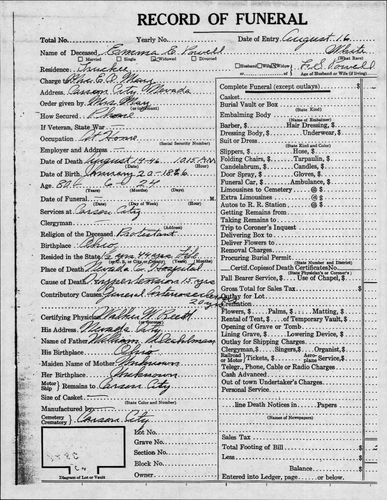 RECORD OF FUNERAL
Total No. Yearly No. Date of Entry August 16
Name of Deceased Emma E. Powell White
Married Single Widowed Divorced (What Race)
Residence Truckee Husband Wife Widow F. S. Powell
Charge Mrs. E. R. May Age of Husband or Wife (if living)
Address Carson City, Nevada
Order given by Mrs. May
How Secured Phone
If Veteran, State War
Occupation At Home
Employer and Address
(Social Security Number)
Date of Death August 14-46 10:15 P.M.
Date of Birth January 20-1866
Age 80 6 24
(Years) (Months) (Days)
Date of Funeral M.
(Day of Week) (Hour)
Services at Carson City
Clergyman
(Address)
Religion of the Deceased Protestant
Birthplace Ohio
Resided in the State
Place of Death Nevada C. Hospital
Cause of Death Hypertension 15 yrs
Contributory Causes General
Certifying Physician
His Address Nevada City
Name of Father William
His Birthplace Ohio
Maiden Name of Mother Unknown
Her Birthplace Unknown
Motor Ship Remains to Carson City
Size of Casket
(State Color and Number)
Manufactured by
Cemetery Crematory Carson City
Lot No.
Grave No.
Section No.
Block No.
Owner
Diagram of Lot or Vault
Complete Funeral (except outlays) $
Casket
Burial Vault or Box
(State Kind)
Embalming Body
(State Name or Number)
Barber, $ Hair Dressing, $
Dressing Body, $ Underwear, $
Suit or Dress
(State Kind and Color)
Slippers, $ Hose, $
Folding Chairs, $ Tarpaulin, $
Candelabrum, $ Candles, $
Door Spray, $ Gloves, $
Funeral Car, $ Ambulance, $
Limousines to Cemetery @ $
Extra Limousines @ $
Autos to R. R. Station @ $
Getting Remains from
Taking Remains to
Trip to Coroner's Inquest
Delivering Box to
Deliver Flowers to
Removal Charge
Procuring Burial Permit
(State Number and District)
Certif. Copies of Death Certificates No.
(State Physician's or Coroner's)
Pall Bearer Service, $ Use of Chapel, $
Gross Total for Sales Tax $
Outlay for Lot
Flowers, $ Palms, $ Matting, $
Rental of Tent, $ of Temporary Vault, $
Opening of Grave or Tomb
Lining Grave, $ Lowering Device, $
Outlay for Shipping Charges
Clergyman, $ Singers, $ Organist, $
Railroad or Motor Tickets, $ Aeroplane Service, $
Telegr., Phone, Cable or Radio Charges
Cash Advanced
Out of town Undertaker's Charges
Personal Service
line Death Notices in Papers
(Names of Newspapers)
Sales Tax
Total Footing of Bill $
Less
Balance $
Entered into Ledger, page or below.